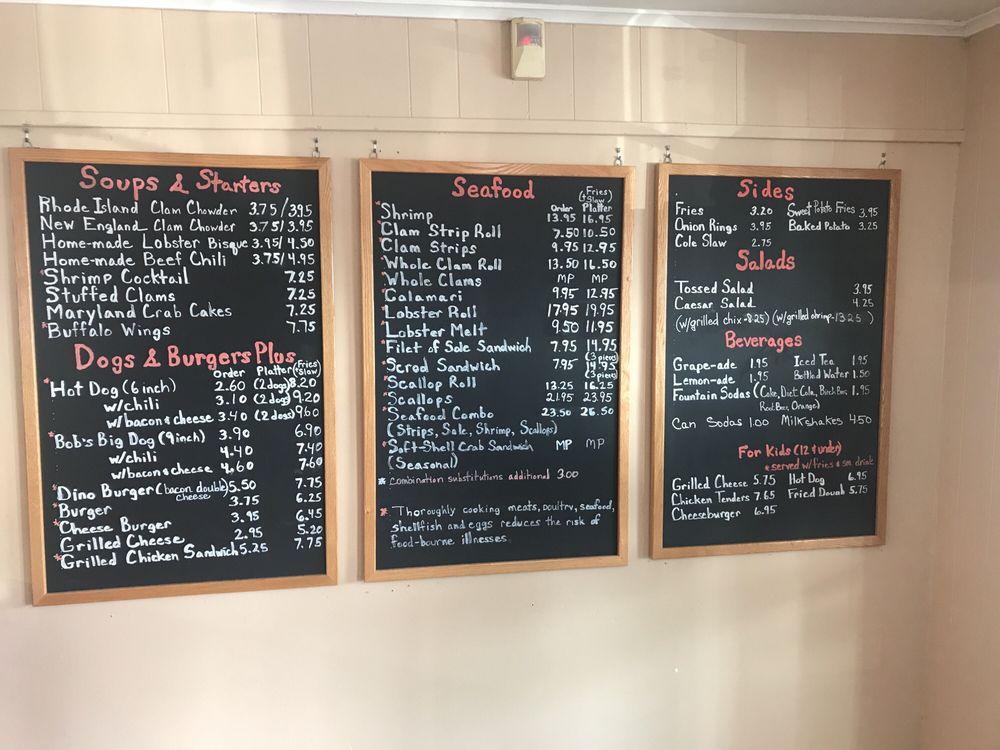 Soups & Starters
Rhode Island Clam Chowder 3.75/3.95
New England Clam Chowder 3.75/3.95
Home-made Lobster Bisque 3.95/4.50
Home-made Beef Chili 3.75/4.95
*Shrimp Cocktail 7.25
Stuffed Clams 7.25
Maryland Crab Cakes 7.25
*Buffalo Wings 7.75
Dogs & Burgers Plus
Order Platter (Fries & Slow)
*Hot Dog (6 inch) 2.60 (2 dogs) 8.20
w/chili 3.10 (2 dogs) 9.20
w/bacon & cheese 3.40 (2 dogs) 9.60
*Bob's Big Dog (9 inch) 3.90 6.90
w/chili 4.40 7.40
w/bacon & cheese 4.60 7.60
*Dino Burger (bacon double cheese) 5.50 7.75
*Burger 3.75 6.25
*Cheese Burger 3.95 6.45
Grilled Cheese 2.95 5.20
*Grilled Chicken Sandwich 5.25 7.75
Seafood
Order (Fries & Slow) Platter
*Shrimp 13.95 16.95
*Clam Strip Roll 7.50 10.50
*Clam Strips 9.95 12.95
*Whole Clam Roll 13.50 16.50
*Whole Clams MP MP
*Calamari 9.95 12.95
*Lobster Roll 17.95 19.95
*Lobster Melt 9.50 11.95
*Filet of Sole Sandwich 7.95 14.95 (3 pieces)
*Scrod Sandwich 7.95 14.95 (3 pieces)
*Scallop Roll 13.25 16.25
*Scallops 21.95 23.95
*Seafood Combo 23.50 26.50
(Strips, Sole, Shrimp, Scallops)
*Soft-Shell Crab Sandwich MP MP
(Seasonal)
* combination substitutions additional 3.00
* Thoroughly cooking meats, poultry, seafood,
shellfish and eggs reduces the risk of
food-bourne illnesses.
Sides
Fries 3.20 Sweet Potato Fries 3.95
Onion Rings 3.95 Baked Potato 3.25
Cole Slaw 2.75
Salads
Tossed Salad 3.95
Caesar Salad 4.25
(w/grilled chix-8.25) (w/grilled shrimp-13.25)
Beverages
Grape-ade 1.95 Iced Tea 1.95
Lemon-ade 1.95 Bottled Water 1.50
Fountain Sodas (Coke, Diet Coke, Birch Beer 1.95
Root Beer, Orange)
Can Sodas 1.00 Milkshakes 4.50
For Kids (12 & under)
* served w/fries & sm drink
Grilled Cheese 5.75 Hot Dog 6.95
Chicken Tenders 7.65 Fried Dough 5.75
Cheeseburger 6.95